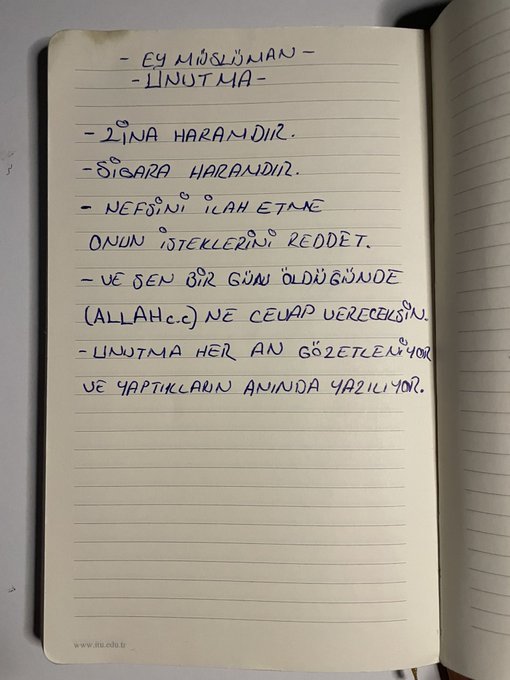 - EY MÜSLÜMAN -
- UNUTMA -
- ZİNA HARAMDIR.
- SİGARA HARAMDIR.
- NEFSİNİ İLAH ETME
ONUN İSTEKLERİNİ REDDET.
- VE SEN BİR GÜN ÖLDÜĞÜNDE
(ALLAH c.c) NE CEVAP VERECEKSİN.
- UNUTMA HER AN GÖZETLENİYOR
VE YAPTIKLARIN ANINDA YAZILIYOR.
www.itu.edu.tr